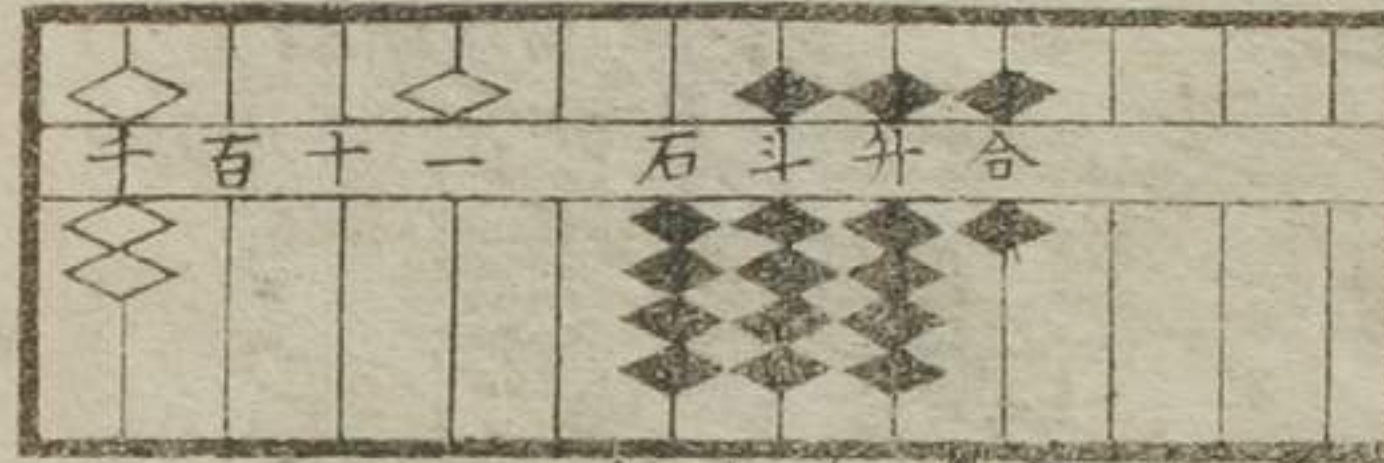 千百十一 石斗升合